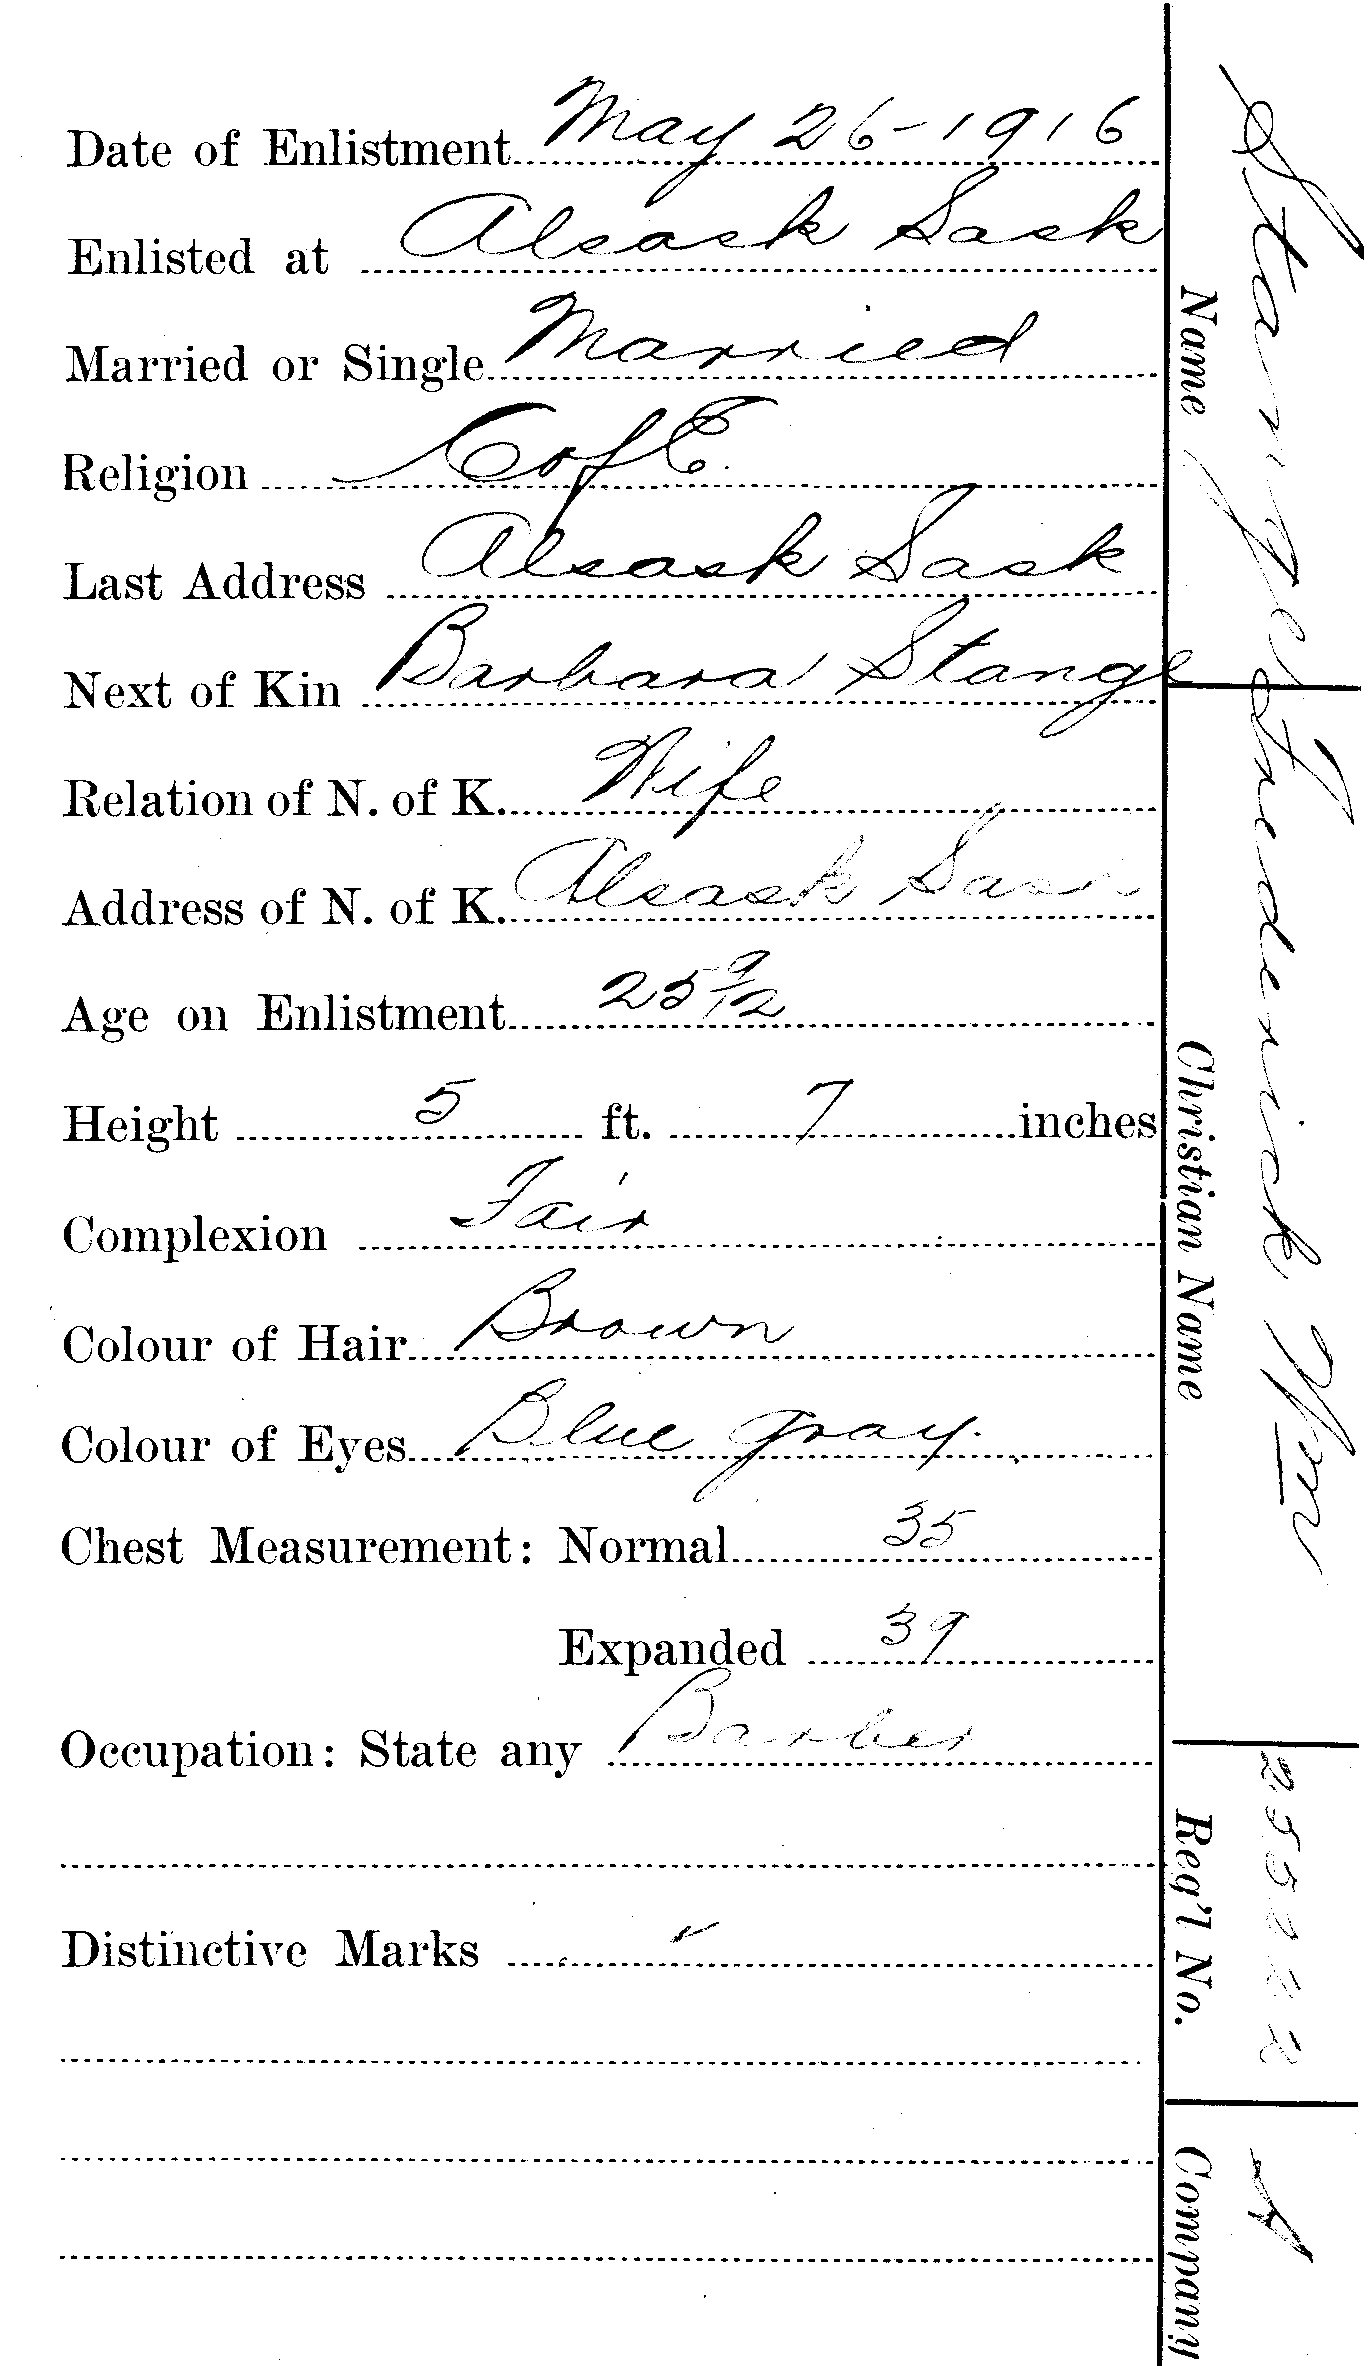 Date of Enlistment May 26-1916
Enlisted at Alsask Sask
Married or Single Married
Religion C of E.
Last Address Alsask Sask
Next of Kin Barbara Stange
Relation of N. of K. Wife
Address of N. of K. Alsask Sask
Age on Enlistment 25 9/12
Height 5 ft. 7 inches
Complexion Fair
Colour of Hair Brown
Colour of Eyes Blue gray.
Chest Measurement: Normal 35
Expanded 39
Occupation: State any Barber
Distinctive Marks
Stange Frederick Wm
Name Christian Name
255222 A
Reg'l No. Company